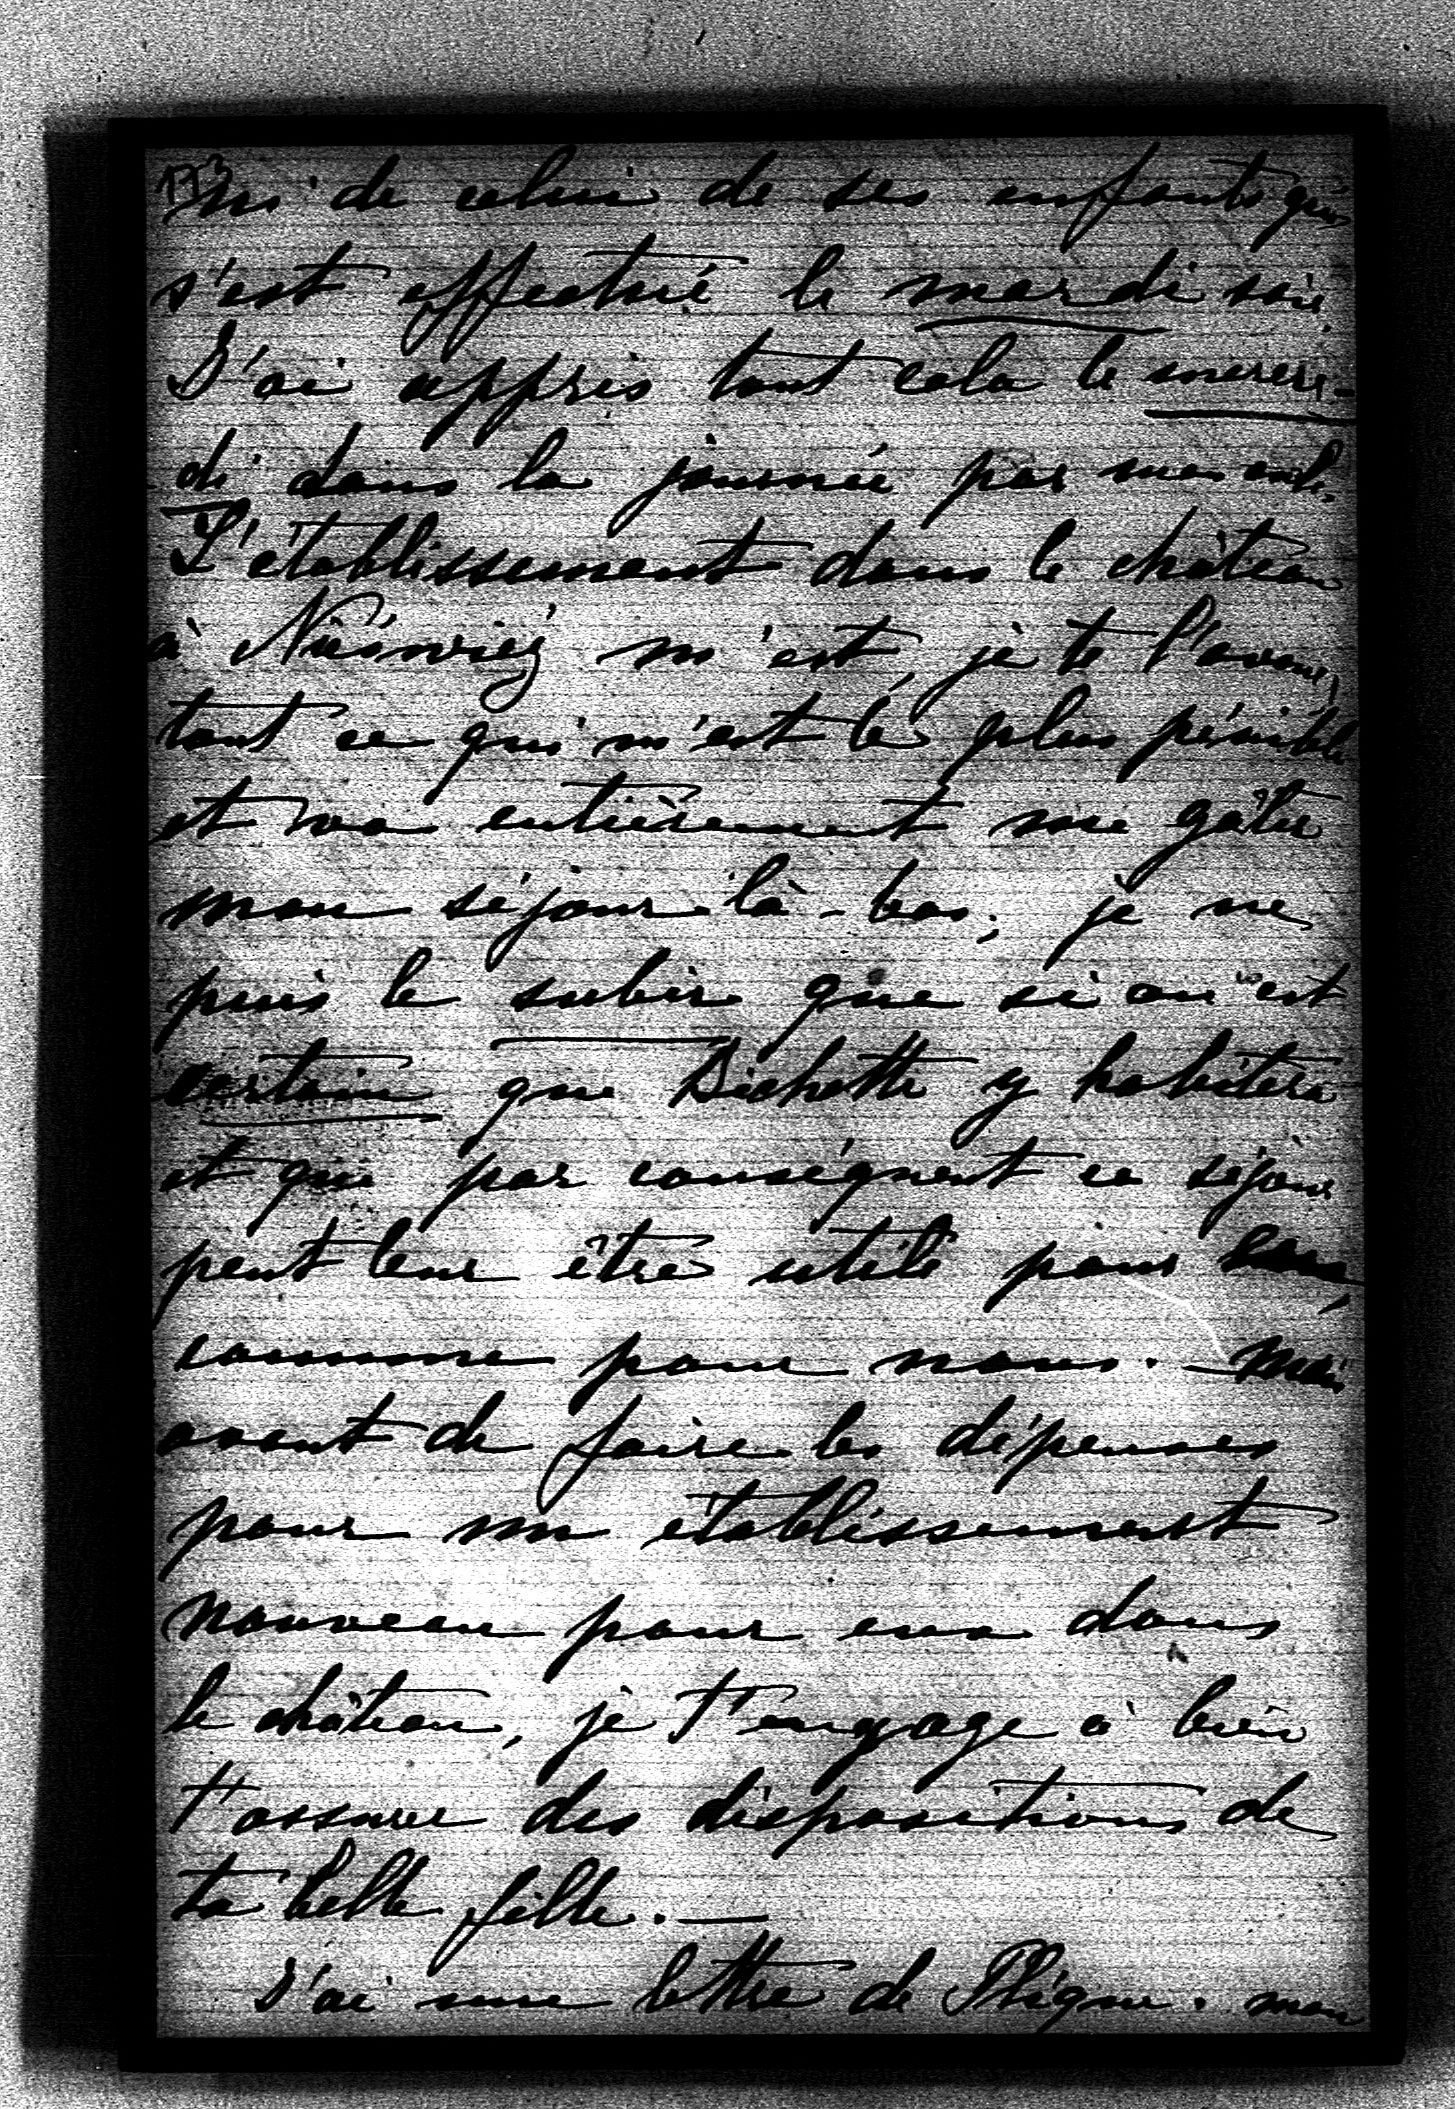 173
ni de celui de ses enfants qui
s'est effectué le mardi soir.
J'ai appris tout cela le mercre-
di dans la journée par mon oncle.
L'établissement dans le château
à Nieswiez m'est, je te l'avoue,
tout ce qui m'est le plus pénible
et va entièrement me gâter
mon séjour là-bas; je ne
puis le subir que si on est
certain que Bichette y habitera
et que par conséquent ce séjour
peut leur être utile pour eux
comme pour nous. — Mais
avant de faire les dépenses
pour un établissement
nouveau pour eux dans
le château, je t'engage à bien
t'assurer des dispositions de
ta belle fille. —
J'ai une lettre de mon